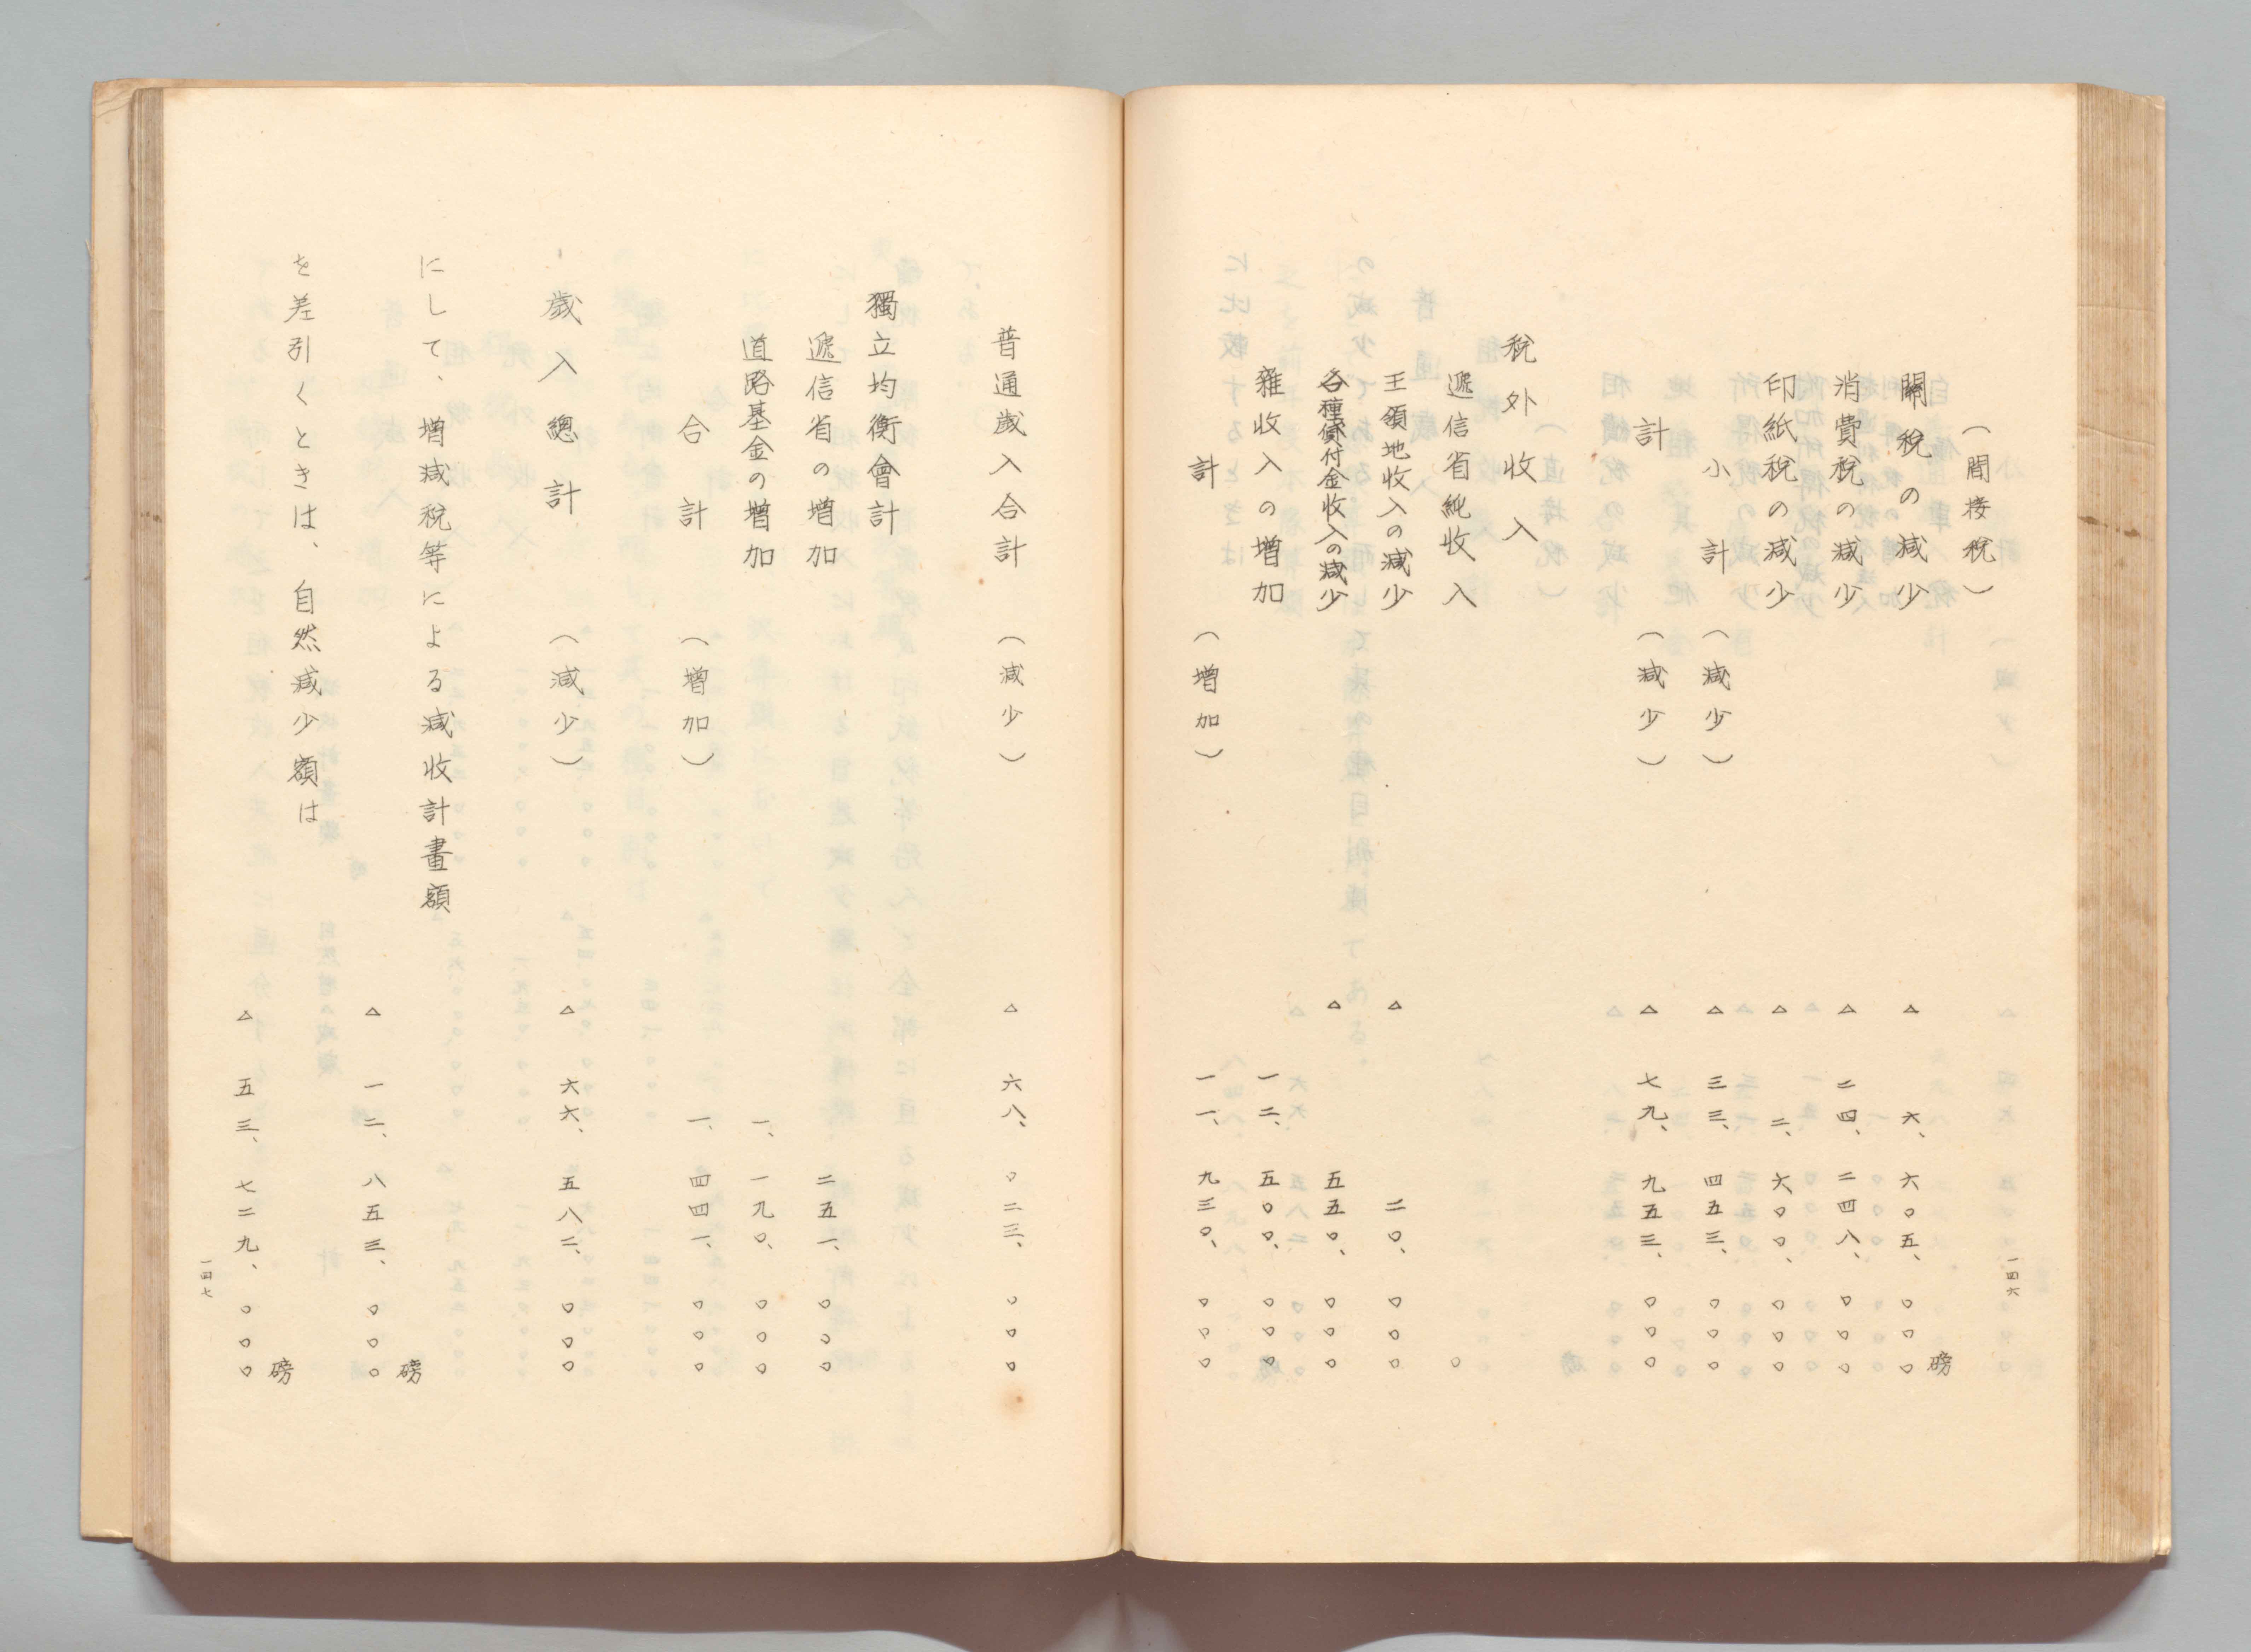 (間接稅)
關稅の減少 △六、六〇五、〇〇〇磅
消費稅の減少 △二四、二四八、〇〇〇
印紙稅の減少 △二、六〇〇、〇〇〇
小計(減少) △三三、四五三、〇〇〇
計(減少) △七九、九五三、〇〇〇
稅外收入
遞信省純收入 〇
王領地收入の減少 △二〇、〇〇〇
各種貸付金收入の減少 △五五〇、〇〇〇
雜收入の增加 一二、五〇〇、〇〇〇
計(增加) 一一、九三〇、〇〇〇
一四六
普通歲入合計(減少) △六八、〇二三、〇〇〇
獨立均衡會計
遞信省の增加 二五一、〇〇〇
道路基金の增加 一、一九〇、〇〇〇
合計(增加) 一、四四一、〇〇〇
歲入總計(減少) △六六、五八二、〇〇〇
にして、增減稅等による減收計畫額
△一二、八五三、〇〇〇磅
を差引くときは、自然減少額は
△五三、七二九、〇〇〇磅
一四七